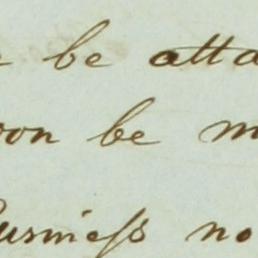 be atta
oon be m
usiness no